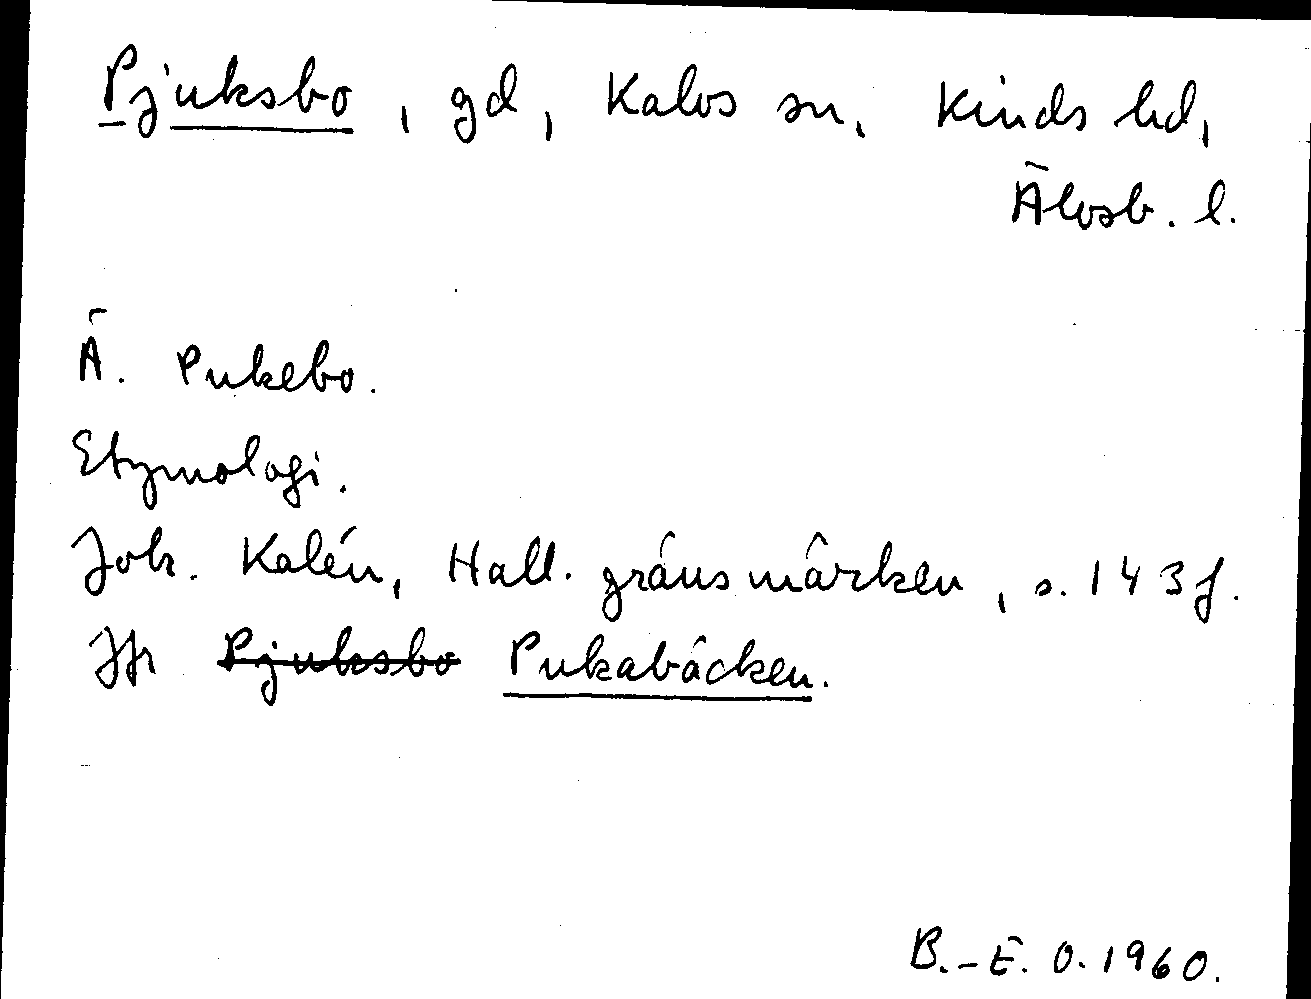 Pjuksbo, gd, Kalvs sn, Kinds hd,
Älvsb. l.
Ä. Pukebo.
Etymologi.
Joh. Kalén, Hall. gränsmärken, s. 143 f.
Jfr Pjuksbo Pukabäcken.
B.-E. O. 1960.